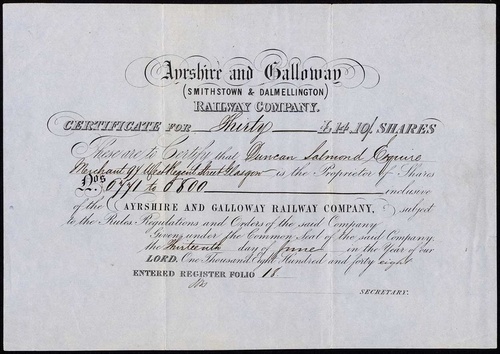 Ayrshire and Galloway
(SMITHSTOWN & DALMELLINGTON)
RAILWAY COMPANY.
CERTIFICATE FOR Thirty £14.10/ SHARES
These are to Certify that Duncan Salmond Esquire
Merchant 97 West Regent Street Glasgow is the Proprietor of Shares
Nos 6771 to 6800 inclusive
of the AYRSHIRE AND GALLOWAY RAILWAY COMPANY, subject
to the Rules Regulations and Orders of the said Company
Given under the Common Seal of the said Company,
the Thirteenth day of June in the Year of our
LORD. One Thousand Eight Hundred and forty eight
ENTERED REGISTER FOLIO 18
SECRETARY.